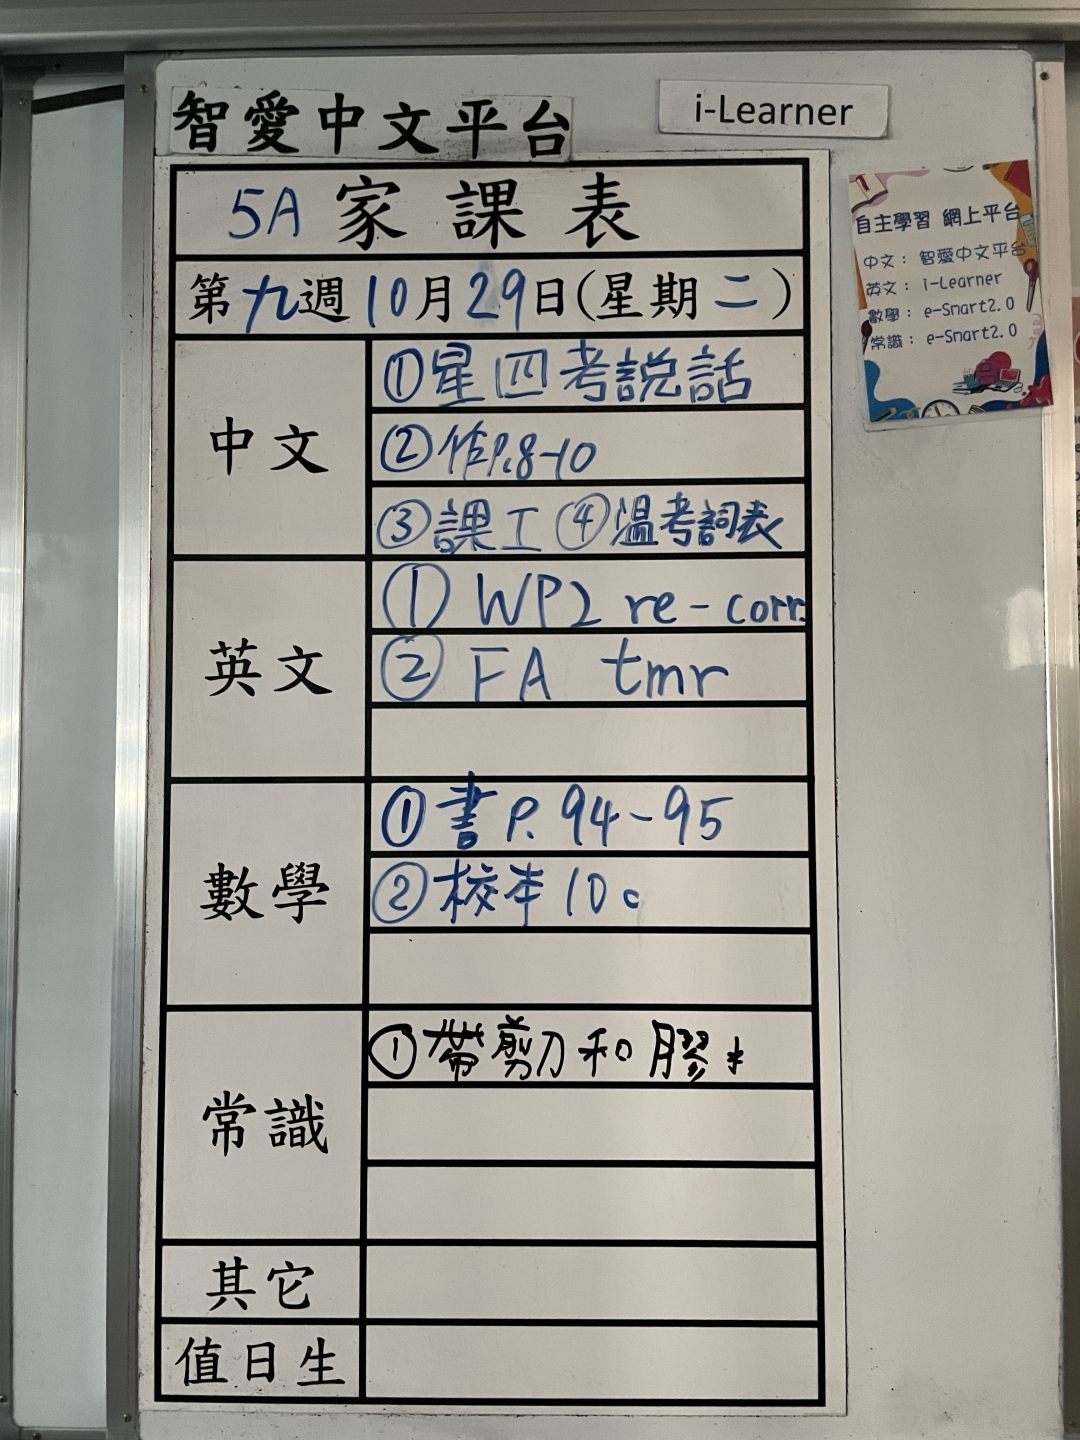 智愛中文平台
i-Learner
5A 家課表
第九週10月29日(星期二)
中文
①星四考説話
②作P.8-10
③課工 ④溫考詞表
英文
① WP2 re-corr.
② FA tmr
數學
①書P. 94-95
②校本10c
常識
①帶剪刀和膠*
其它
值日生
自主學習 網上平台
中文： 智愛中文平台
英文： i-Learner
數學： e-Smart2.0
常識： e-Smart2.0